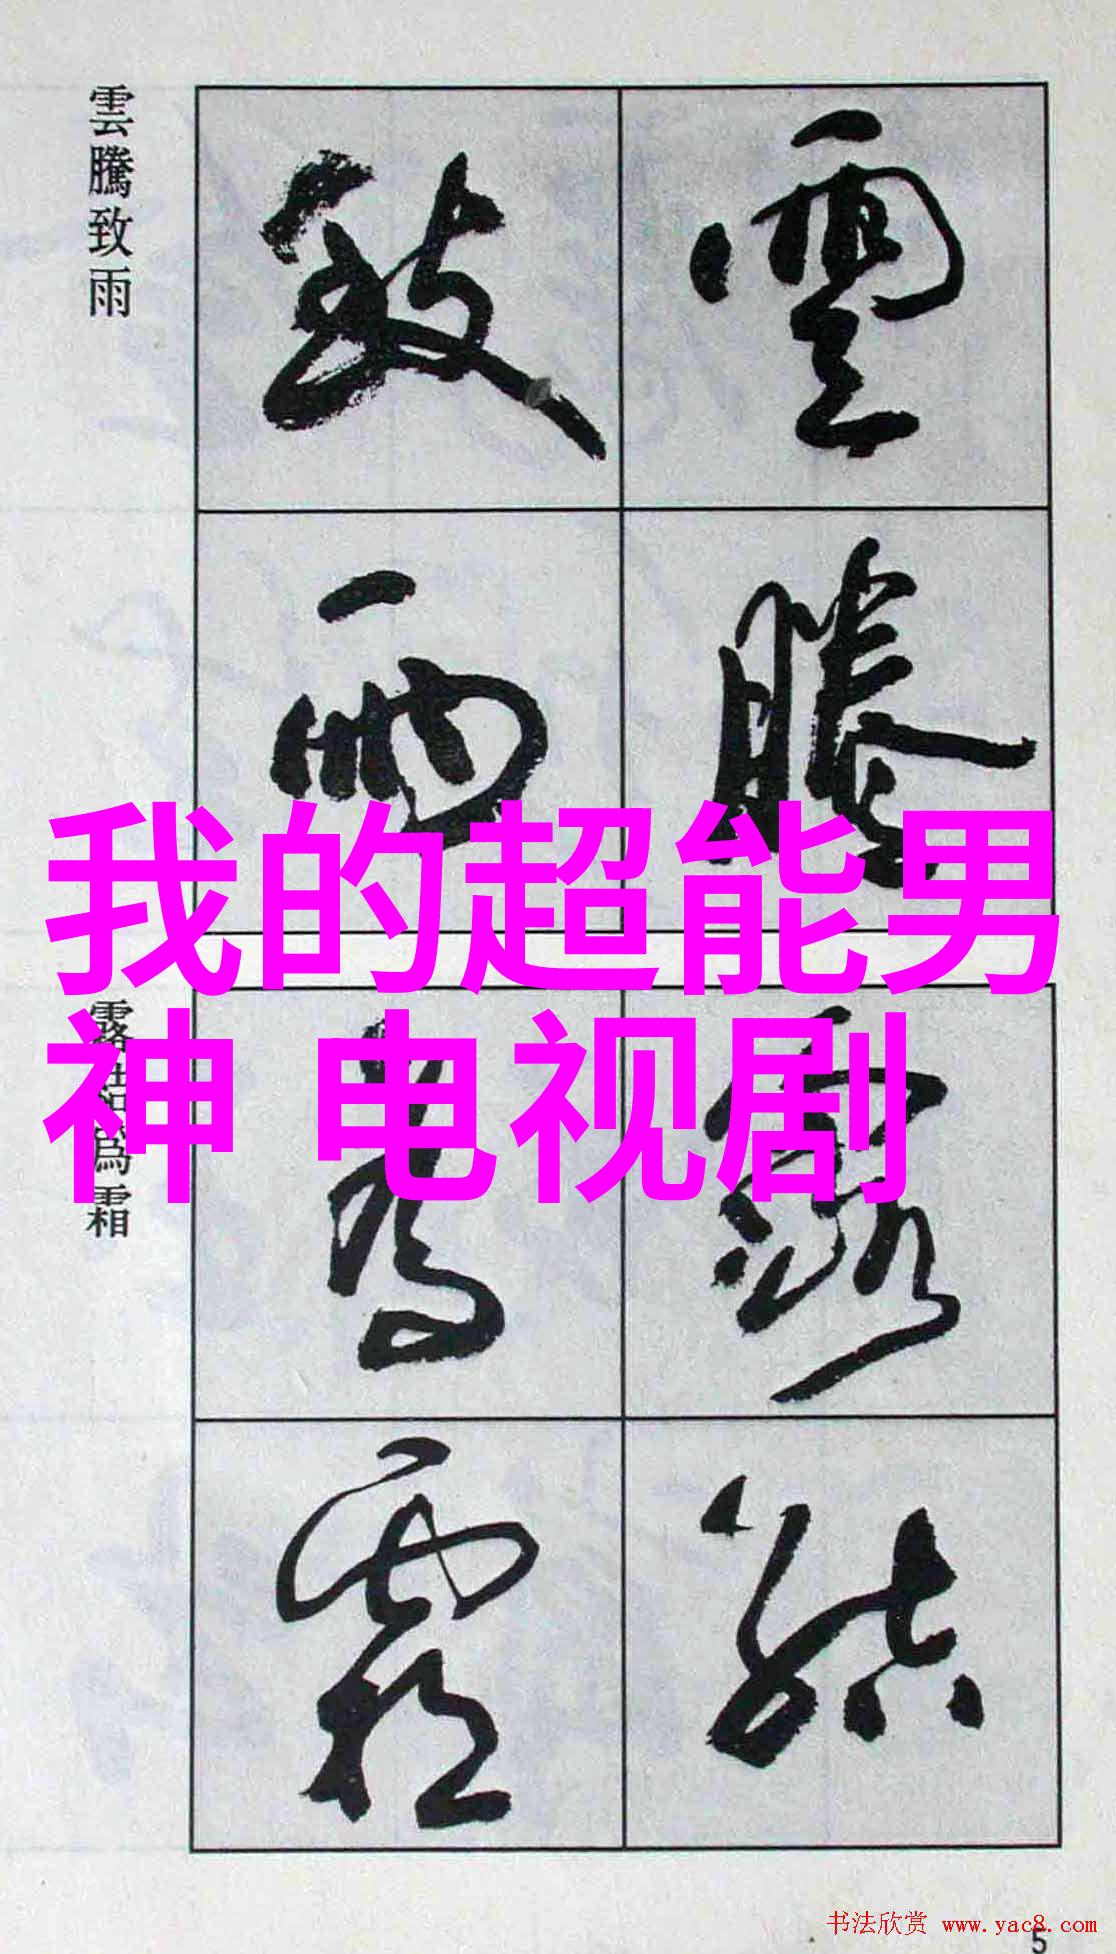 雲騰致雨
雲騰
致雨
我的超能男
神 电视剧
露結為霜
露結
為霜
书法欣赏 www.yac8.com
5